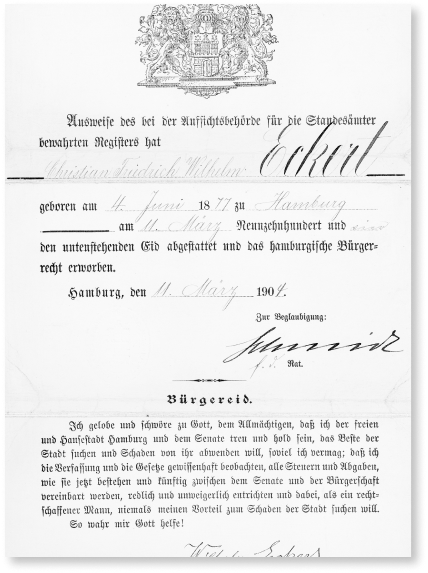 Ausweise des bei der Aufsichtsbehörde für die Standesämter
bewahrten Registers hat
Christian Friedrich Wilhelm Eckert
geboren am 4. Juni 1877 zu Hamburg
am 11. März Neunzehnhundert und
den untenstehenden Eid abgestattet und das hamburgische Bürger-
recht erworben.
Hamburg, den 11. März 1904.
Zur Beglaubigung:
Schmidt
Rat.
Bürgereid.
Ich gelobe und schwöre zu Gott, dem Allmächtigen, daß ich der freien
und Hansestadt Hamburg und dem Senate treu und hold sein, das Beste der
Stadt suchen und Schaden von ihr abwenden will, soviel ich vermag; daß ich
die Verfassung und die Gesetze gewissenhaft beobachten, alle Steuern und Abgaben,
wie sie jetzt bestehen und künftig zwischen dem Senate und der Bürgerschaft
vereinbart werden, redlich und unweigerlich entrichten und dabei, als ein recht-
schaffener Mann, niemals meinen Vorteil zum Schaden der Stadt suchen will.
So wahr mir Gott helfe!
Eckert